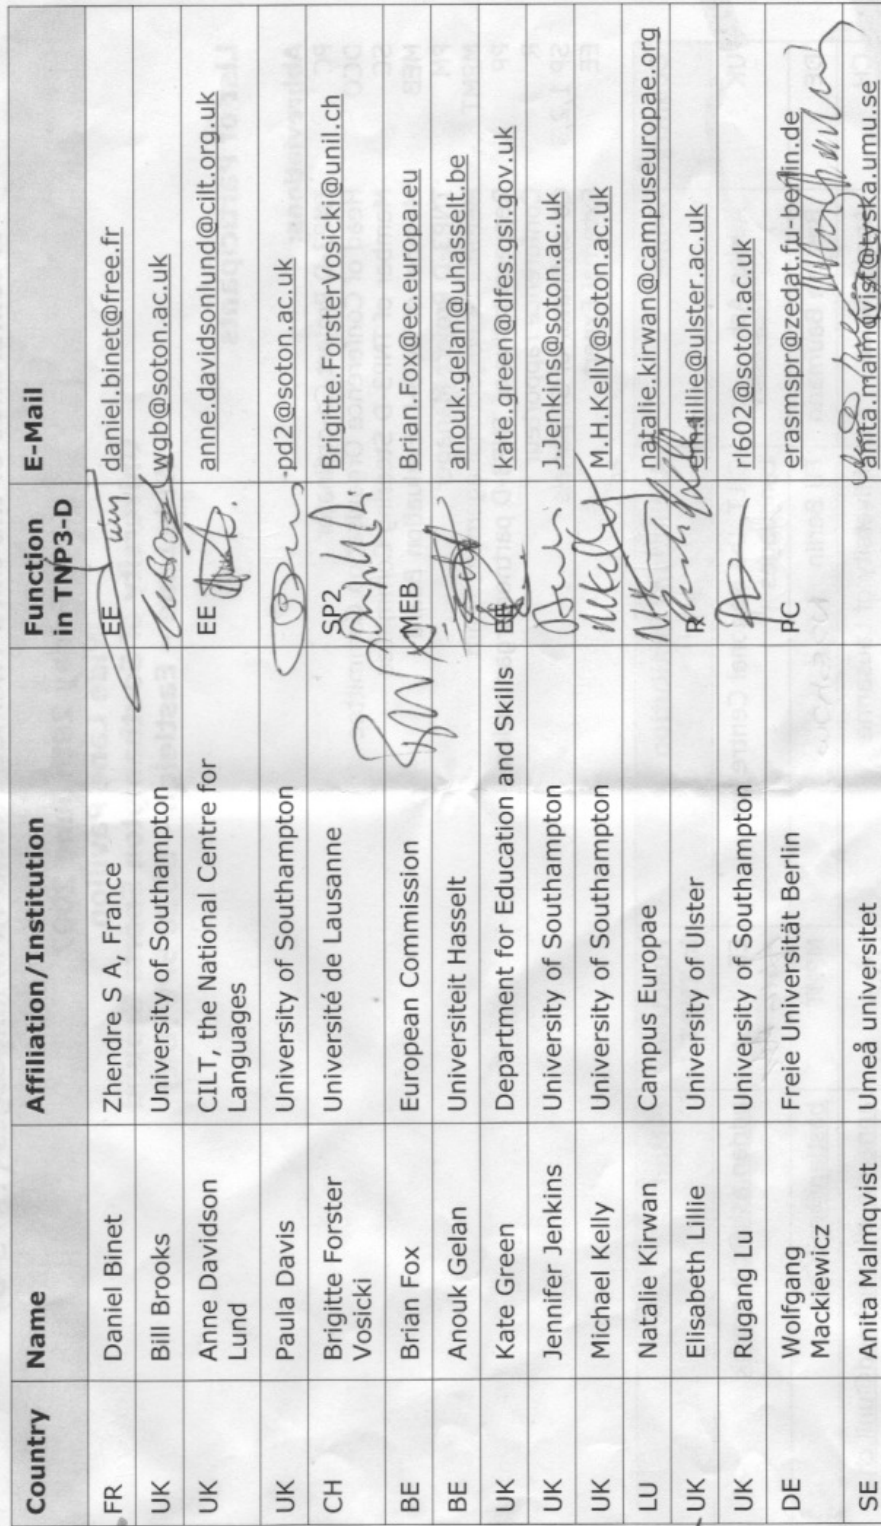 Country Name Affiliation/Institution Function in TNP3-D E-Mail
FR Daniel Binet Zhendre S A, France EE daniel.binet@free.fr
UK Bill Brooks University of Southampton wgb@soton.ac.uk
UK Anne Davidson Lund CILT, the National Centre for Languages EE anne.davidsonlund@cilt.org.uk
UK Paula Davis University of Southampton pd2@soton.ac.uk
CH Brigitte Forster Vosicki Université de Lausanne SP2 Brigitte.ForsterVosicki@unil.ch
BE Brian Fox European Commission MEB Brian.Fox@ec.europa.eu
BE Anouk Gelan Universiteit Hasselt anouk.gelan@uhasselt.be
UK Kate Green Department for Education and Skills EE kate.green@dfes.gsi.gov.uk
UK Jennifer Jenkins University of Southampton J.Jenkins@soton.ac.uk
UK Michael Kelly University of Southampton M.H.Kelly@soton.ac.uk
LU Natalie Kirwan Campus Europae natalie.kirwan@campuseuropae.org
UK Elisabeth Lillie University of Ulster R em.lillie@ulster.ac.uk
UK Rugang Lu University of Southampton rl602@soton.ac.uk
DE Wolfgang Mackiewicz Freie Universität Berlin PC erasmspr@zedat.fu-berlin.de
SE Anita Malmqvist Umeå universitet anita.malmqvist@tyska.umu.se